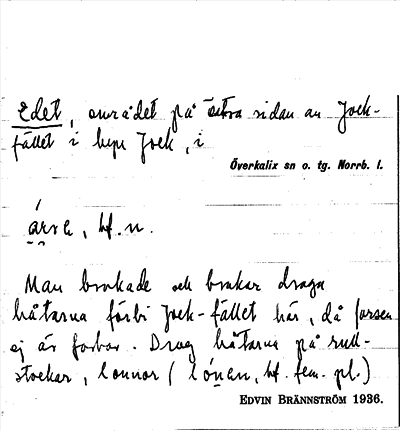 Edet, området på östra sidan av Jock-
fallet i byn Jock, i
Överkalix sn o. tg. Norrb. l.
bf. n.
Man brukade och brukar draga
båtarna förbi Jock-fallet här, då forsen
ej är farbar. Drog båtarna på rull-
stockar, lonnor (lónan, bf. fem. pl.)
EDVIN BRÄNNSTRÖM 1936.